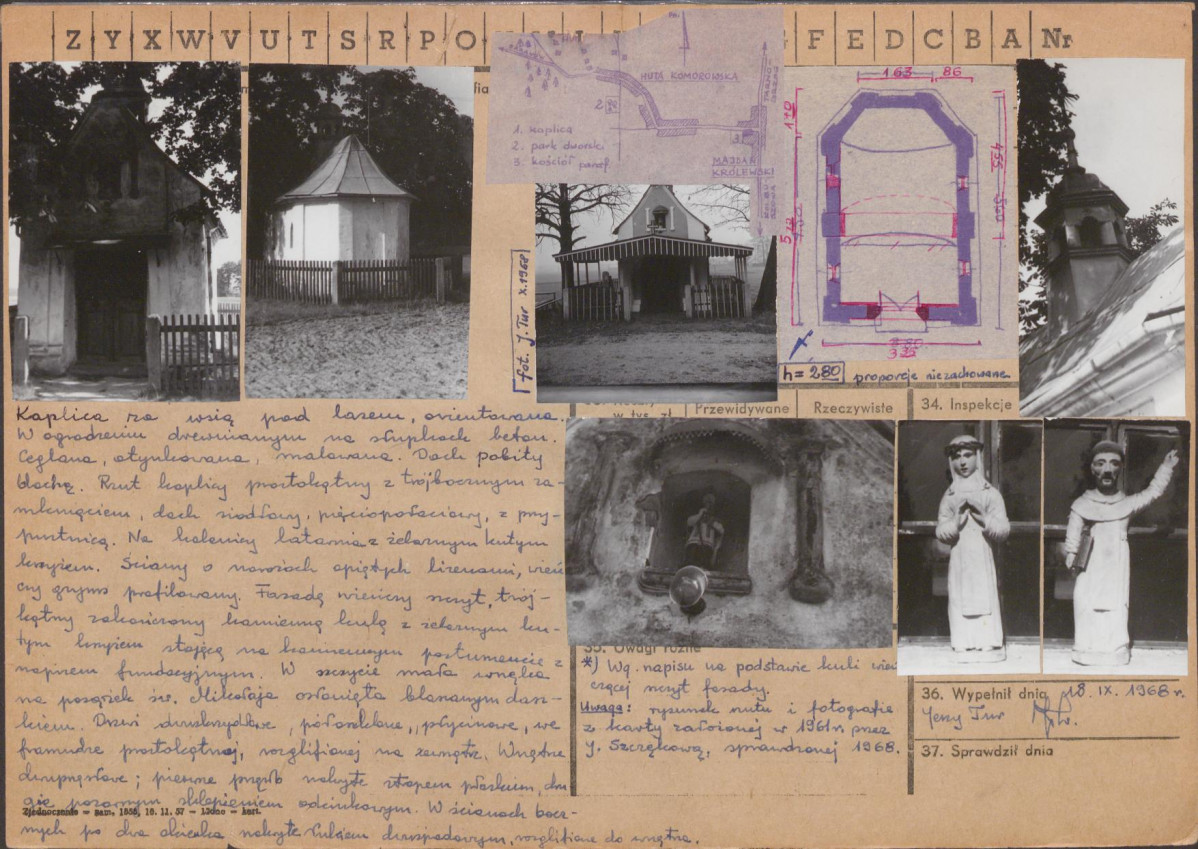 Z Y X W V U T S R P O F E D C B A Nr
HUTA KOMOROWSKA
2
1. kaplica
2. park dworski
3. kościół paraf.
3.
MAJDAN
KRÓLEWSKI
163 86
170
455
500
570
335
h = 280 proporcje niezachowane
fot. J. Tur X.1968
w tys. zł
Przewidywane
Rzeczywiste
34. Inspekcje
Kaplica za wsią pod lasem, orientowana.
W ogrodzeniu drewnianym na słupkach beton.
Ceglana, otynkowana, malowana. Dach pobity
blachą. Rzut kaplicy prostokątny z trójbocznym za-
mknięciem, dach siodłowy, pięciopołaciowy, z przy-
pustnicą. Na kalenicy latarnia z żelaznym kutym
krzyżem. Ściany o narożach opiętych lizenami, wień
czy gzyms profilowany. Fasadę wieńczy szczyt, trój-
kątny zakończony kamienną kulą z żelaznym ku-
tym krzyżem stojącą na kamiennym postumencie z
napisem fundacyjnym. W szczycie mała wnęka
na posążek św. Mikołaja osłonięta blaszanym dasz-
kiem. Drzwi dwuskrzydłowe, płycinowe, we
framudze prostokątnej, rozglifionej na zewnątrz. Wnętrze
dwuprzęsłowe; pierwsze przęsło nakryte stropem płaskim, dru
gie pozornym sklepieniem odcinkowym. W ścianach bocz-
nych po dwa okienka nakryte łukiem dwuspadowym, rozglifione do wnętrza.
Zjednoczenie — zam. 1856, 10. 11. 57
35. Uwagi różne
*) Wg. napisu na podstawie kuli wień
czącej szczyt fasady.
Uwaga: rysunek rzutu i fotografie
z karty założonej w 1961 r. przez
J. Szczękową, sprawdzonej 1968.
36. Wypełnił dnia 18. IX. 1968 r.
Jerzy Tur
37. Sprawdził dnia